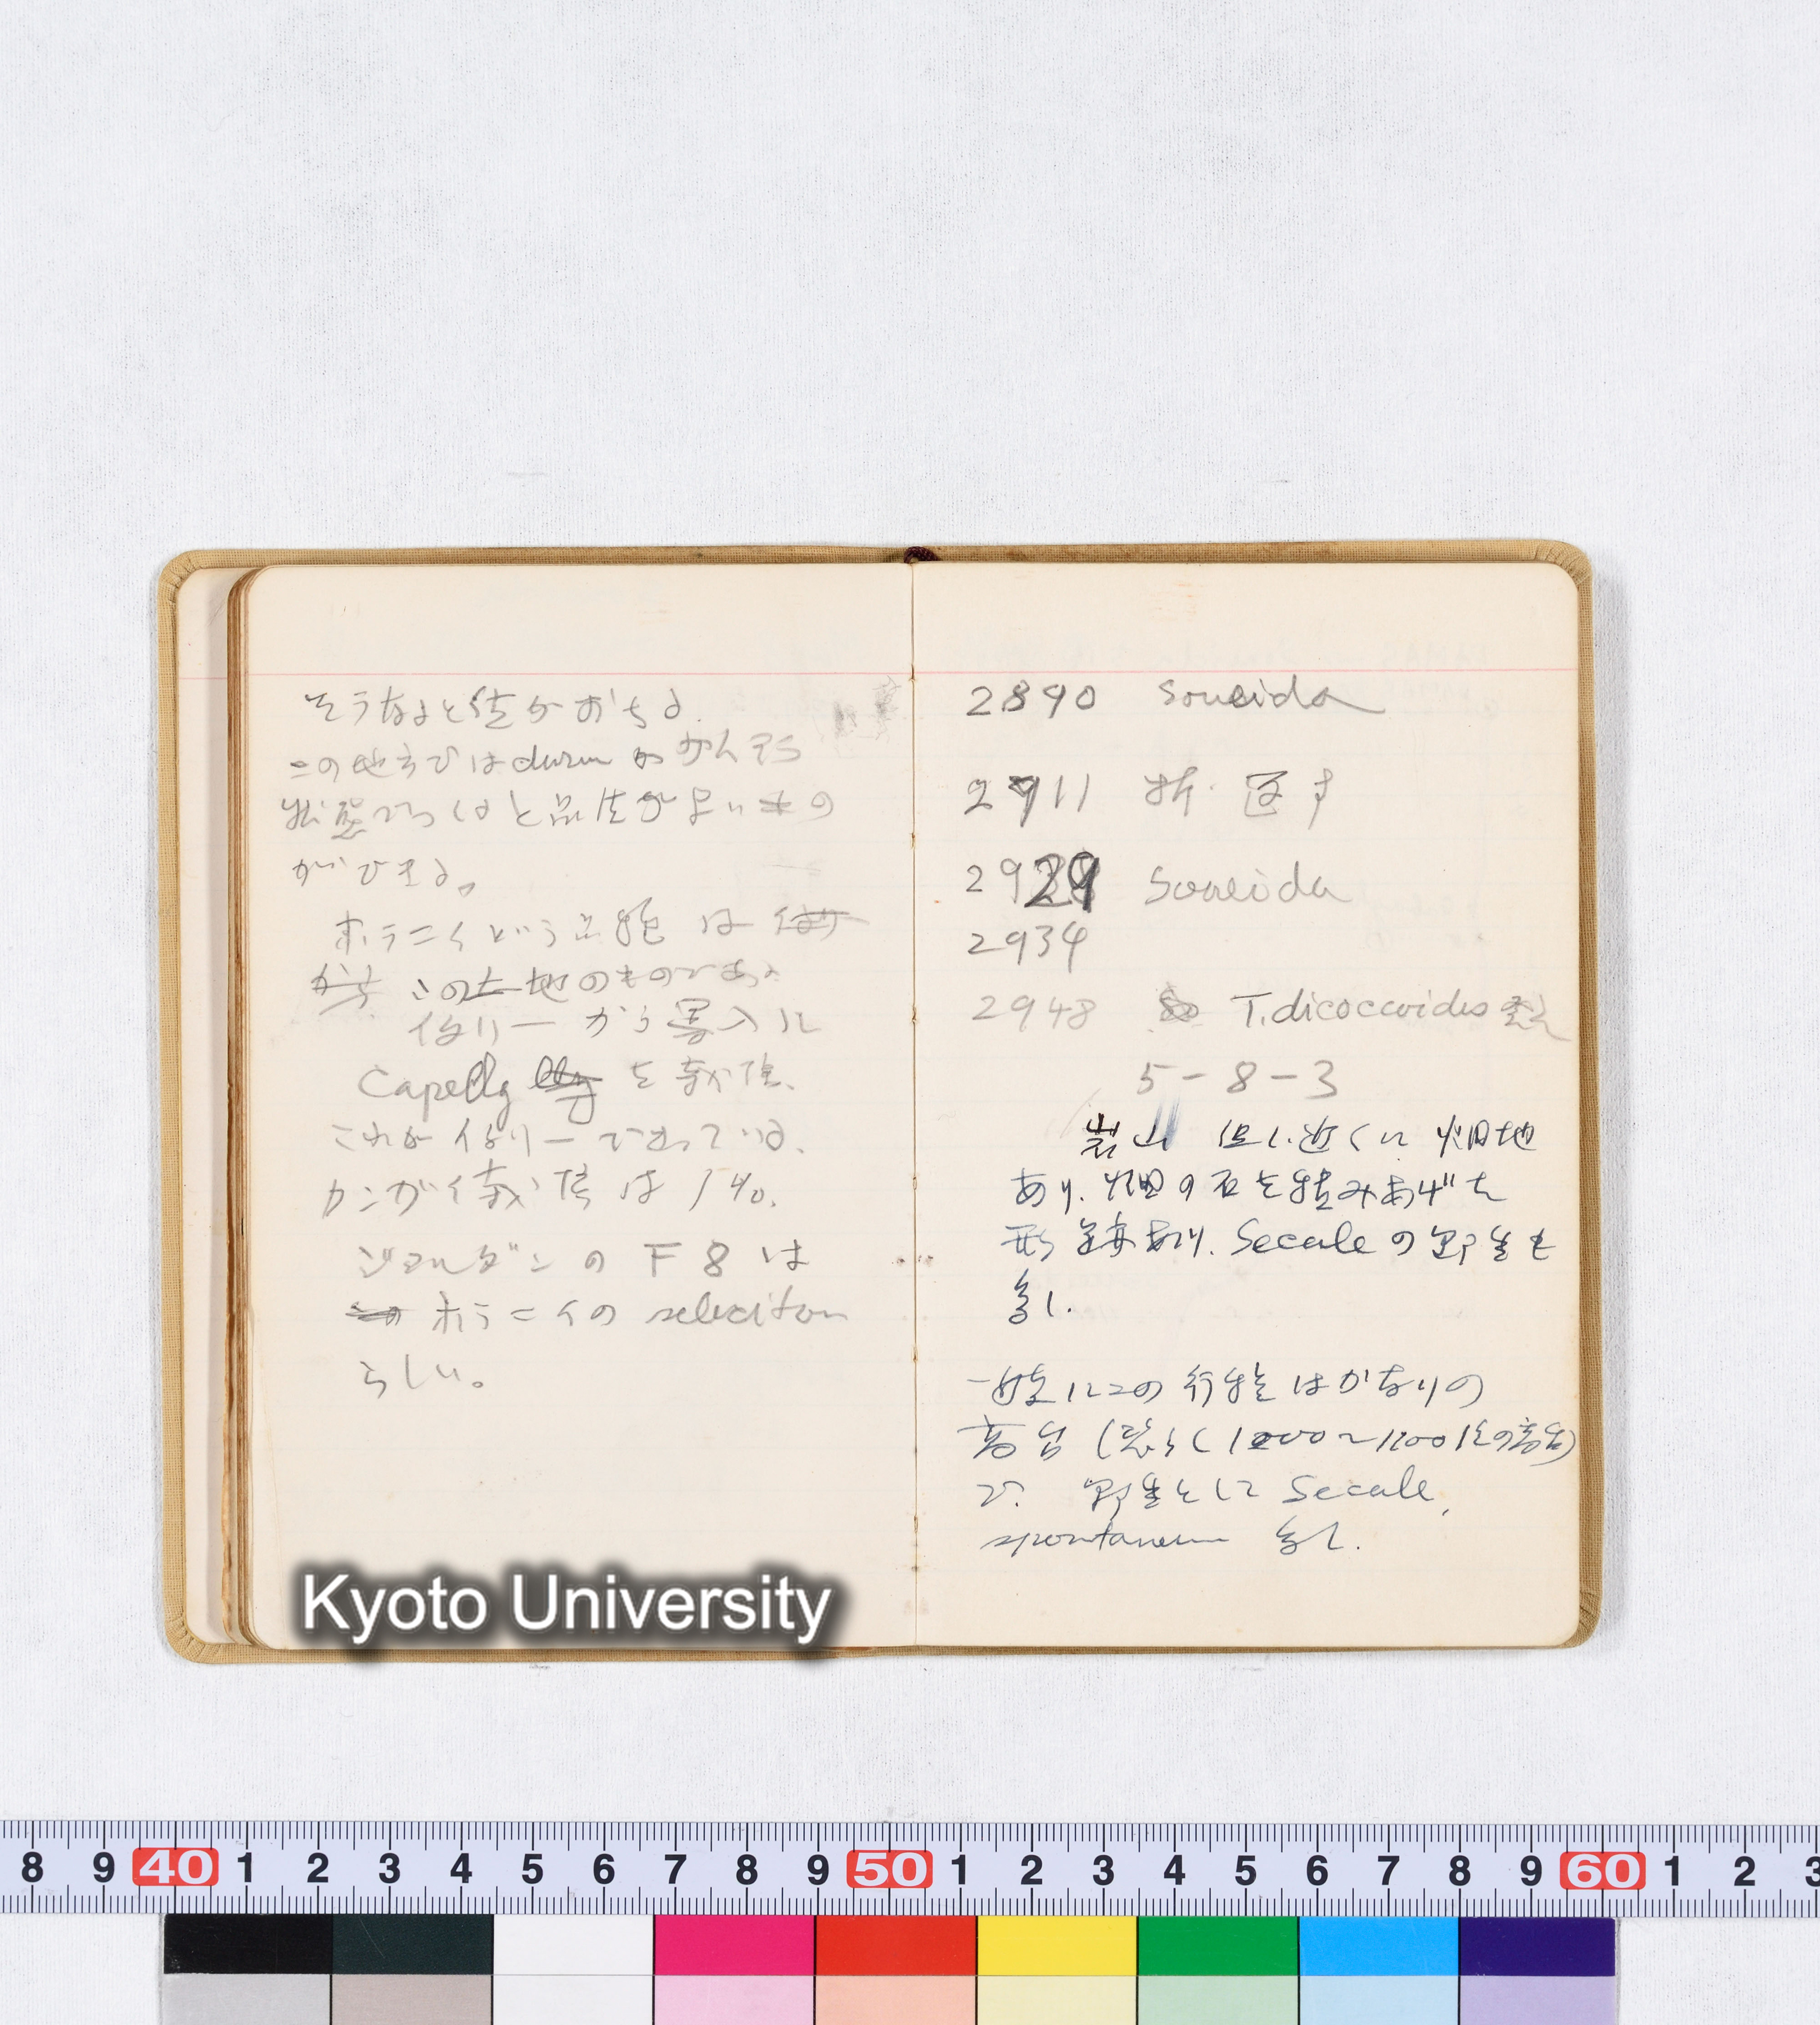 そうなると値がおちる
この地方ではdurumがかんそう
状態でつくると品生が良いもの
ができる。
ホラニイという品種は
この土地のものである
イタリーから導入した
Capelly を栽培、
これがイタリーで
かんがい栽培は 1%.
ジョルダンの F8 は
ホラニイの selection
らしい。
Kyoto University
2890 Soueida
2911
2929 Soueida
2934
2948 T. dicoccoides
5-8-3
岩山 但し近くに畑地
あり. 畑の石を積みあげた
形跡あり. Secaleの野生も
多し.
一般にこの行程はかなりの
高台 (恐らく1000〜1200位の高台)
で. 野生として Secale,
spontaneum 多し.
8 9 40 1 2 3 4 5 6 7 8 9 50 1 2 3 4 5 6 7 8 9 60 1 2 3